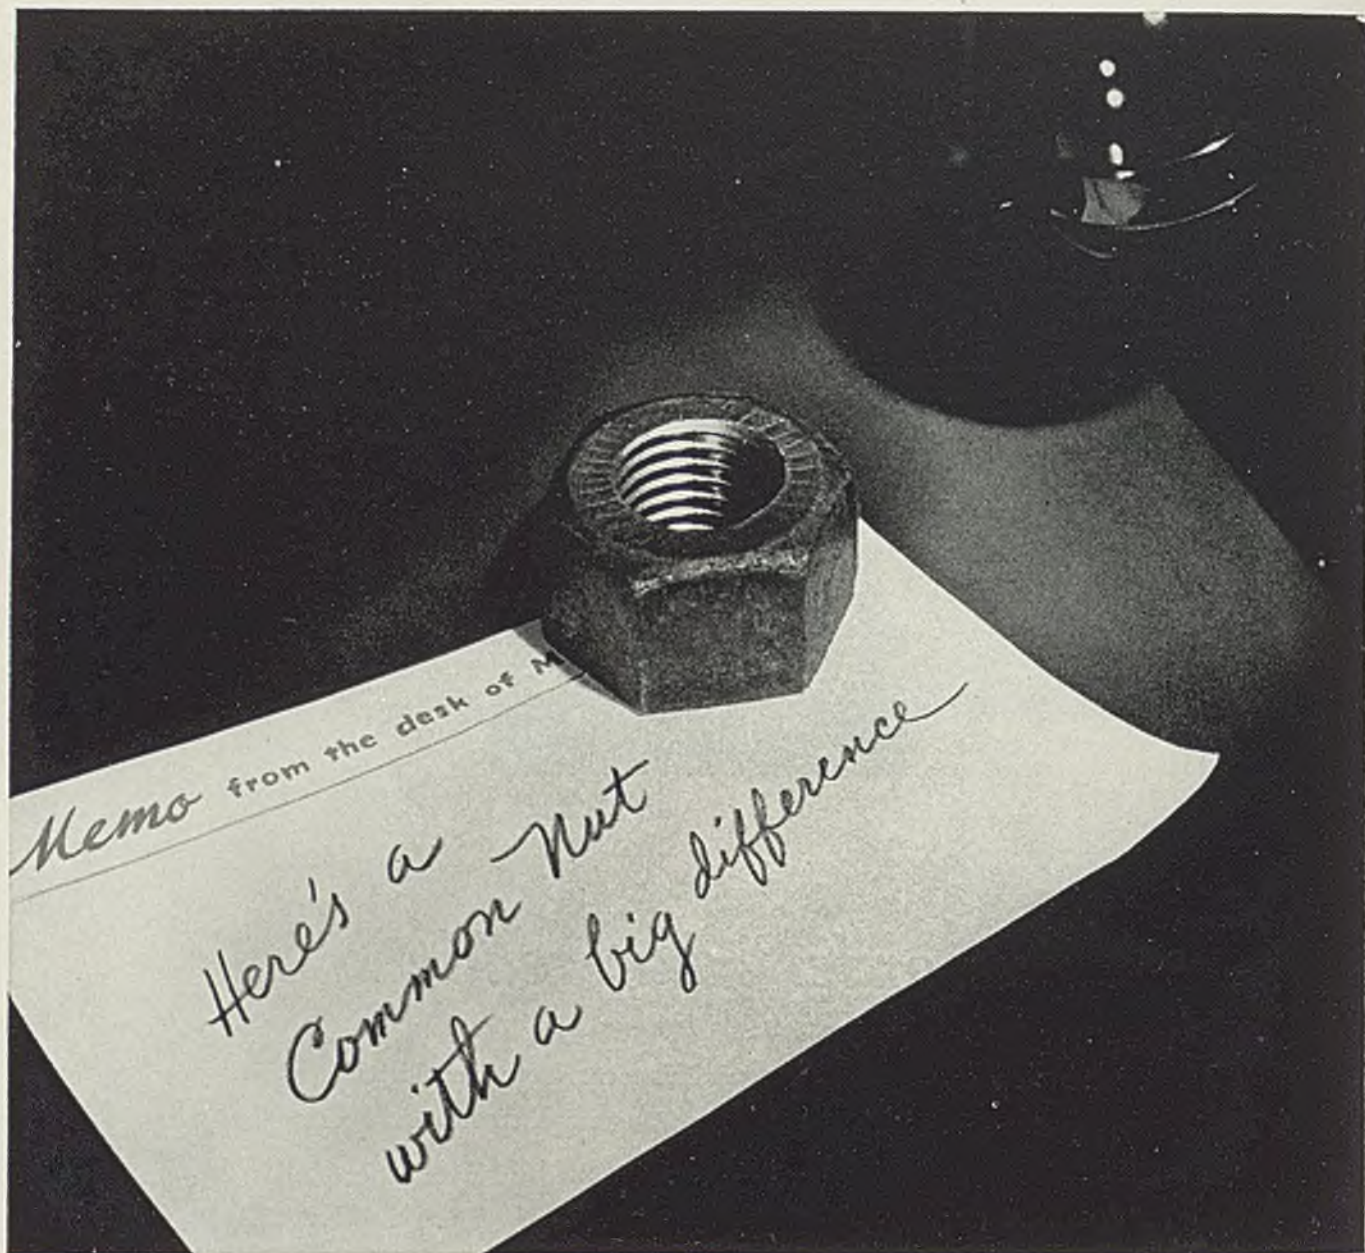 Memo from the desk of M
Here's a
Common Nut
with a big difference